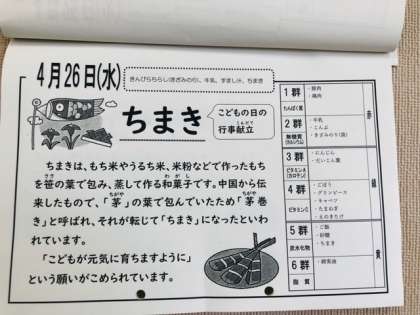 4月26日(水)
きんぴらちらし(きざみのり)、牛乳、すまし汁、ちまき
ちまき
こどもの日の
行事献立
こんだて
ちまきは、もち米やうるち米、米粉などで作ったもち
を笹の葉で包み、蒸して作る和菓子です。中国から伝
ささ
わがし
来したもので、「茅」の葉で包んでいたため「茅巻
ちがや
ちがや
き」と呼ばれ、それが転じて「ちまき」になったといわ
れています。
「こどもが元気に育ちますように」
という願いがこめられています。
1群
たんぱく質
・豚肉
・鶏肉
2群
無機質
(カルシウム)
・牛乳
・こんぶ
・きざみのり(袋)
3群
ビタミンA
(カロテン)
・にんじん
・だいこん葉
4群
ビタミンC
・ごぼう
・グリンピース
・キャベツ
・たまねぎ
・えのきたけ
5群
炭水化物
・ご飯
・砂糖
・ちまき
6群
脂質
・調合油
赤
緑
黄